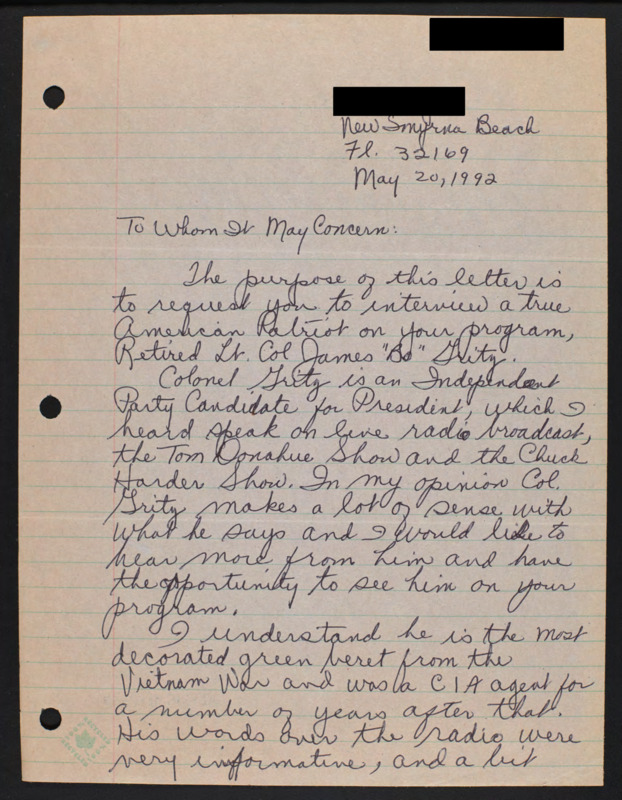 New Smyrna Beach
Fl. 32169
May 20, 1992
To Whom It May Concern:
The purpose of this letter is
to request you to interview a true
American Patriot on your program,
Retired Lt. Col James "Bo" Gritz.
Colonel Gritz is an Independent
Party Candidate for President, which I
heard speak on live radio broadcast,
the Tom Donahue Show and the Chuck
Harder Show. In my opinion Col.
Gritz makes a lot of sense with
what he says and I would like to
hear more from him and have
the opportunity to see him on your
program.
I understand he is the most
decorated green beret from the
Vietnam War and was a CIA agent for
a number of years after that.
His words over the radio were
very informative, and a bit